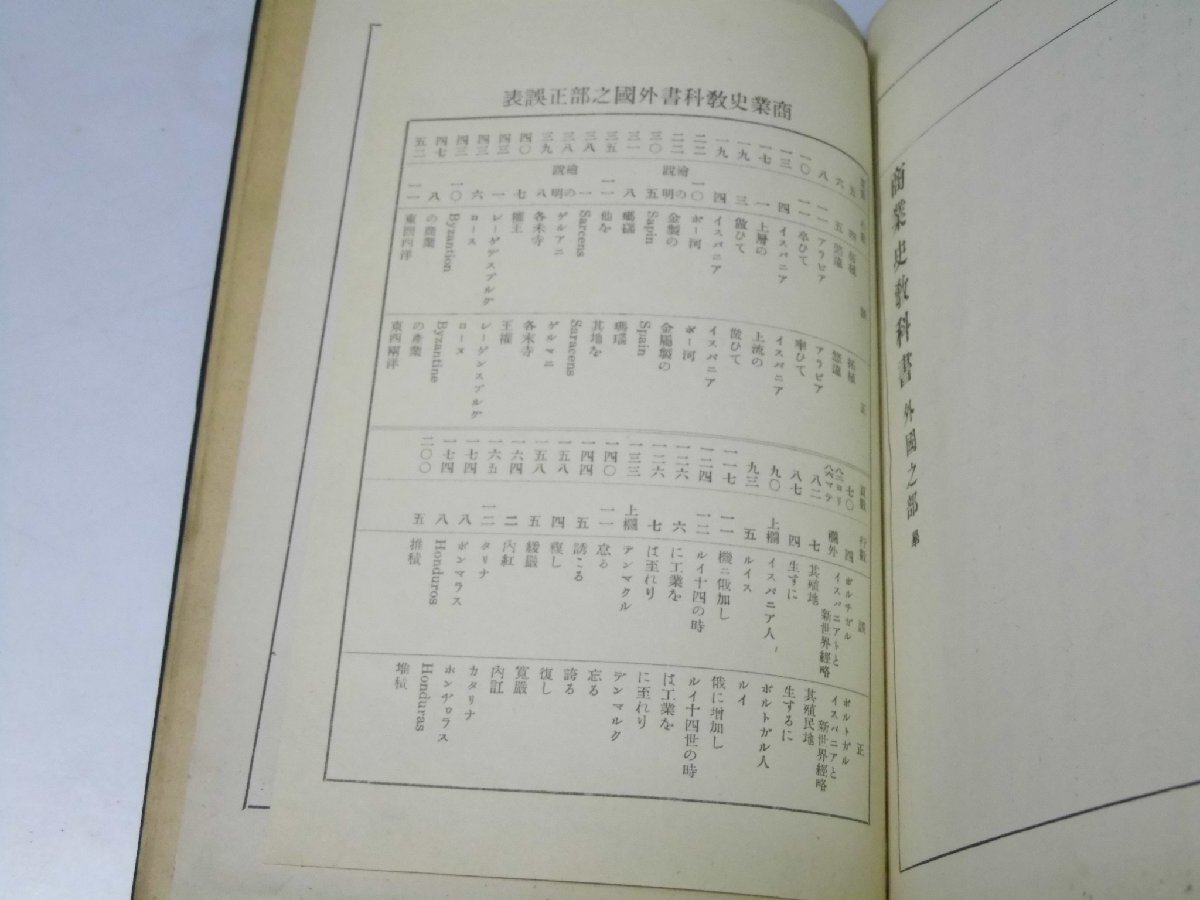 商業史敎科書 外國之部 終
商業史敎科書外國之部正誤表
頁數 行數 誤 正
八 一一 アラビア アラビア
一〇 一一 卒ひて 率ひて
一三 四 イスパニア イスパニア
一七 一 上層の 上流の
一九 三
一九 四 イスパニア イスパニア
二二 一〇 ポー河 ポー河
二二 繪の說明 金製の 金屬製の
三〇 五 Sapin Spain
三一 八
三五 一一 他を 其地を
三八 一 Sarcens Saracens
三八 繪の說明 ゲルアニ ゲルマニ
三九 八 各米寺 各末寺
四〇 七 權王 王權
四三 一 レーゲデスブルグ レーゲンスブルグ
四三 六 ロース ローヌ
四三 一〇 Byzantion Byzantine
四七 八 の商業 の產業
五二 一一 東西兩洋
頁數 行數 誤 正
七〇 四 ポルチガル ポルトガル
欄外 イスパニアトと新世界經略 イスパニアと新世界經略
八二 七 其殖地 其殖民地
八七 四 生ずに 生するに
九〇 上欄 イスパニア人 ポルトガル人
九三 五 ルイス ルイ
一一七 一一 機ニ俄加し 俄に增加し
一二四 一二 ルイ十四の時 ルイ十四世の時
一二六 六 に工業を は工業を
一二六 七 は至れり に至れり
一三三 上欄 アンマクル デンマルク
一四〇 一一 怠る 忘る
一四四 五 誘こる 誇る
一五八 四 複し 復し
一五八 五 緩嚴 寬嚴
一六四 二 內紅 內訌
一六五 一二 タリナ カタリナ
一七四 八 ホンマラス ホンヂロラス
一七四 八 Honduros Honduras
二〇〇 五 推積 堆積